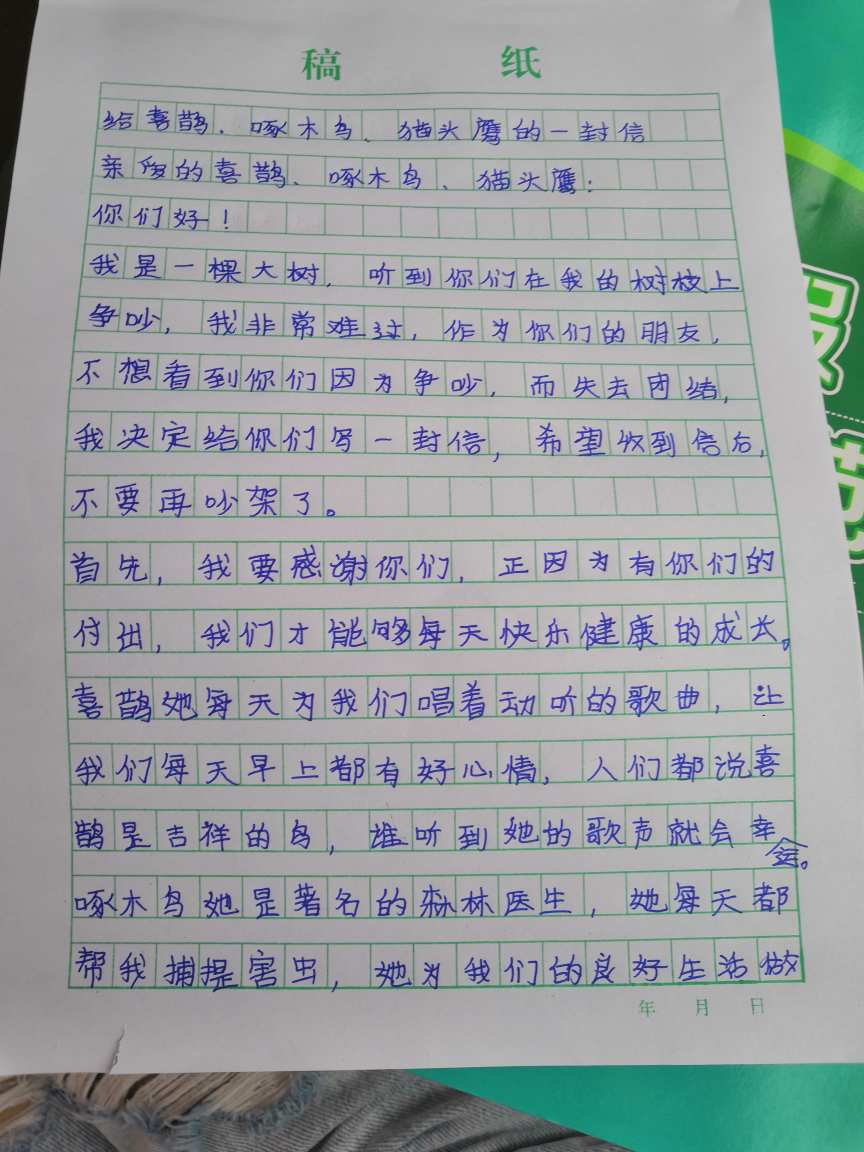 稿 纸
给喜鹊、啄木鸟、猫头鹰的一封信
亲爱的喜鹊、啄木鸟、猫头鹰:
你们好!
我是一棵大树,听到你们在我的树枝上
争吵,我非常难过,作为你们的朋友,
不想看到你们因为争吵,而失去团结,
我决定给你们写一封信,希望收到信后,
不要再吵架了。
首先,我要感谢你们,正因为有你们的
付出,我们才能够每天快乐健康的成长。
喜鹊她每天为我们唱着动听的歌曲,让
我们每天早上都有好心情,人们都说喜
鹊是吉祥的鸟,谁听到她的歌声就会幸
运。
啄木鸟她是著名的森林医生,她每天都
帮我捕捉害虫,她为我们的良好生活做
年 月 日